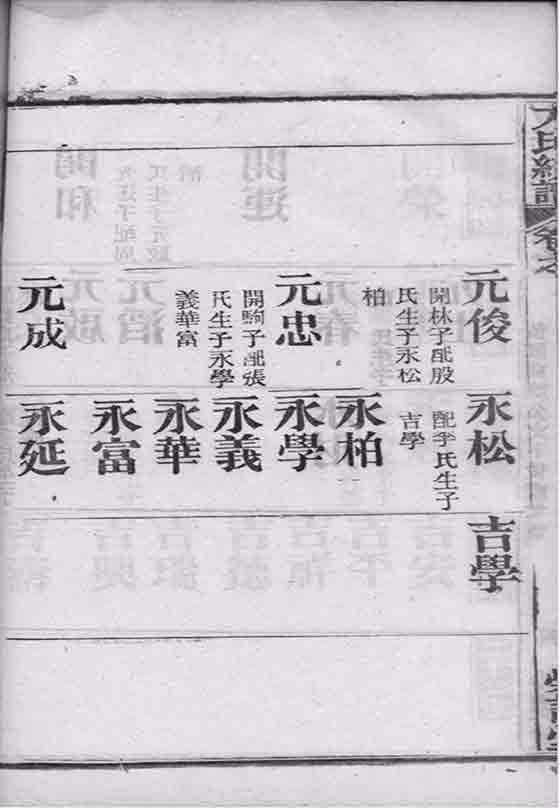 卷之
元俊
開林子配殷
氏生子永松
柏
元忠
開駒子配張
氏生子永學
義華富
元成
永松
配李氏生子
吉學
永柏
永學
永義
永華
永富
永延
吉學